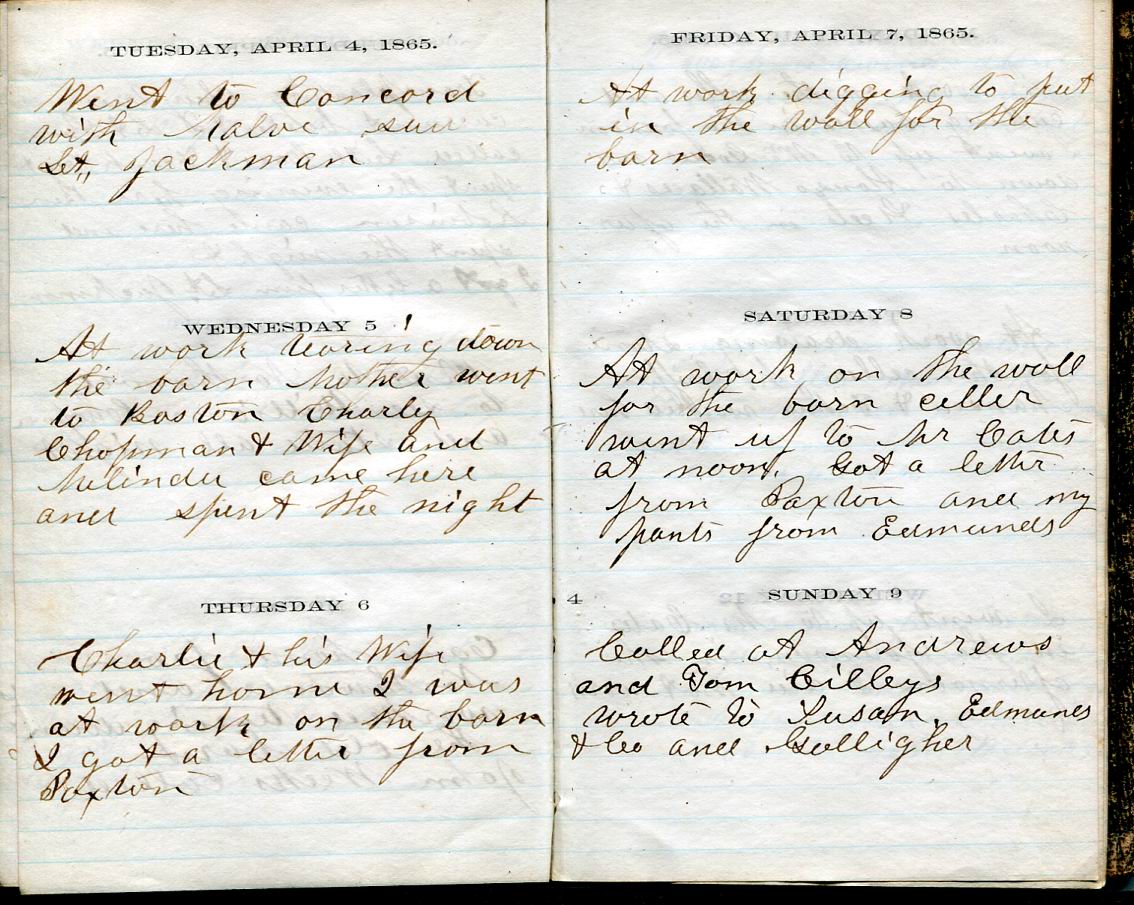 TUESDAY, APRIL 4, 1865.
Went to Concord
with Malve saw
Lt,, Jackman
WEDNESDAY 5
At work tearing down
the barn Mother went
to Boston Charly
Chapman & Wife and
Melinda came here
and spent the night
THURSDAY 6
Charlie & his Wife
went home I was
at work on the barn
I got a letter from
Paxton
FRIDAY, APRIL 7, 1865.
At work digging to put
in the wall for the
barn
SATURDAY 8
At work on the wall
for the barn celler
went up to Mr Cates
at noon, Got a letter
from Paxton and my
pants from Edmunds
4 SUNDAY 9
Called at Andrews
and Tom Cilleys
wrote to Susan, Edmunds
& Co and Golligher